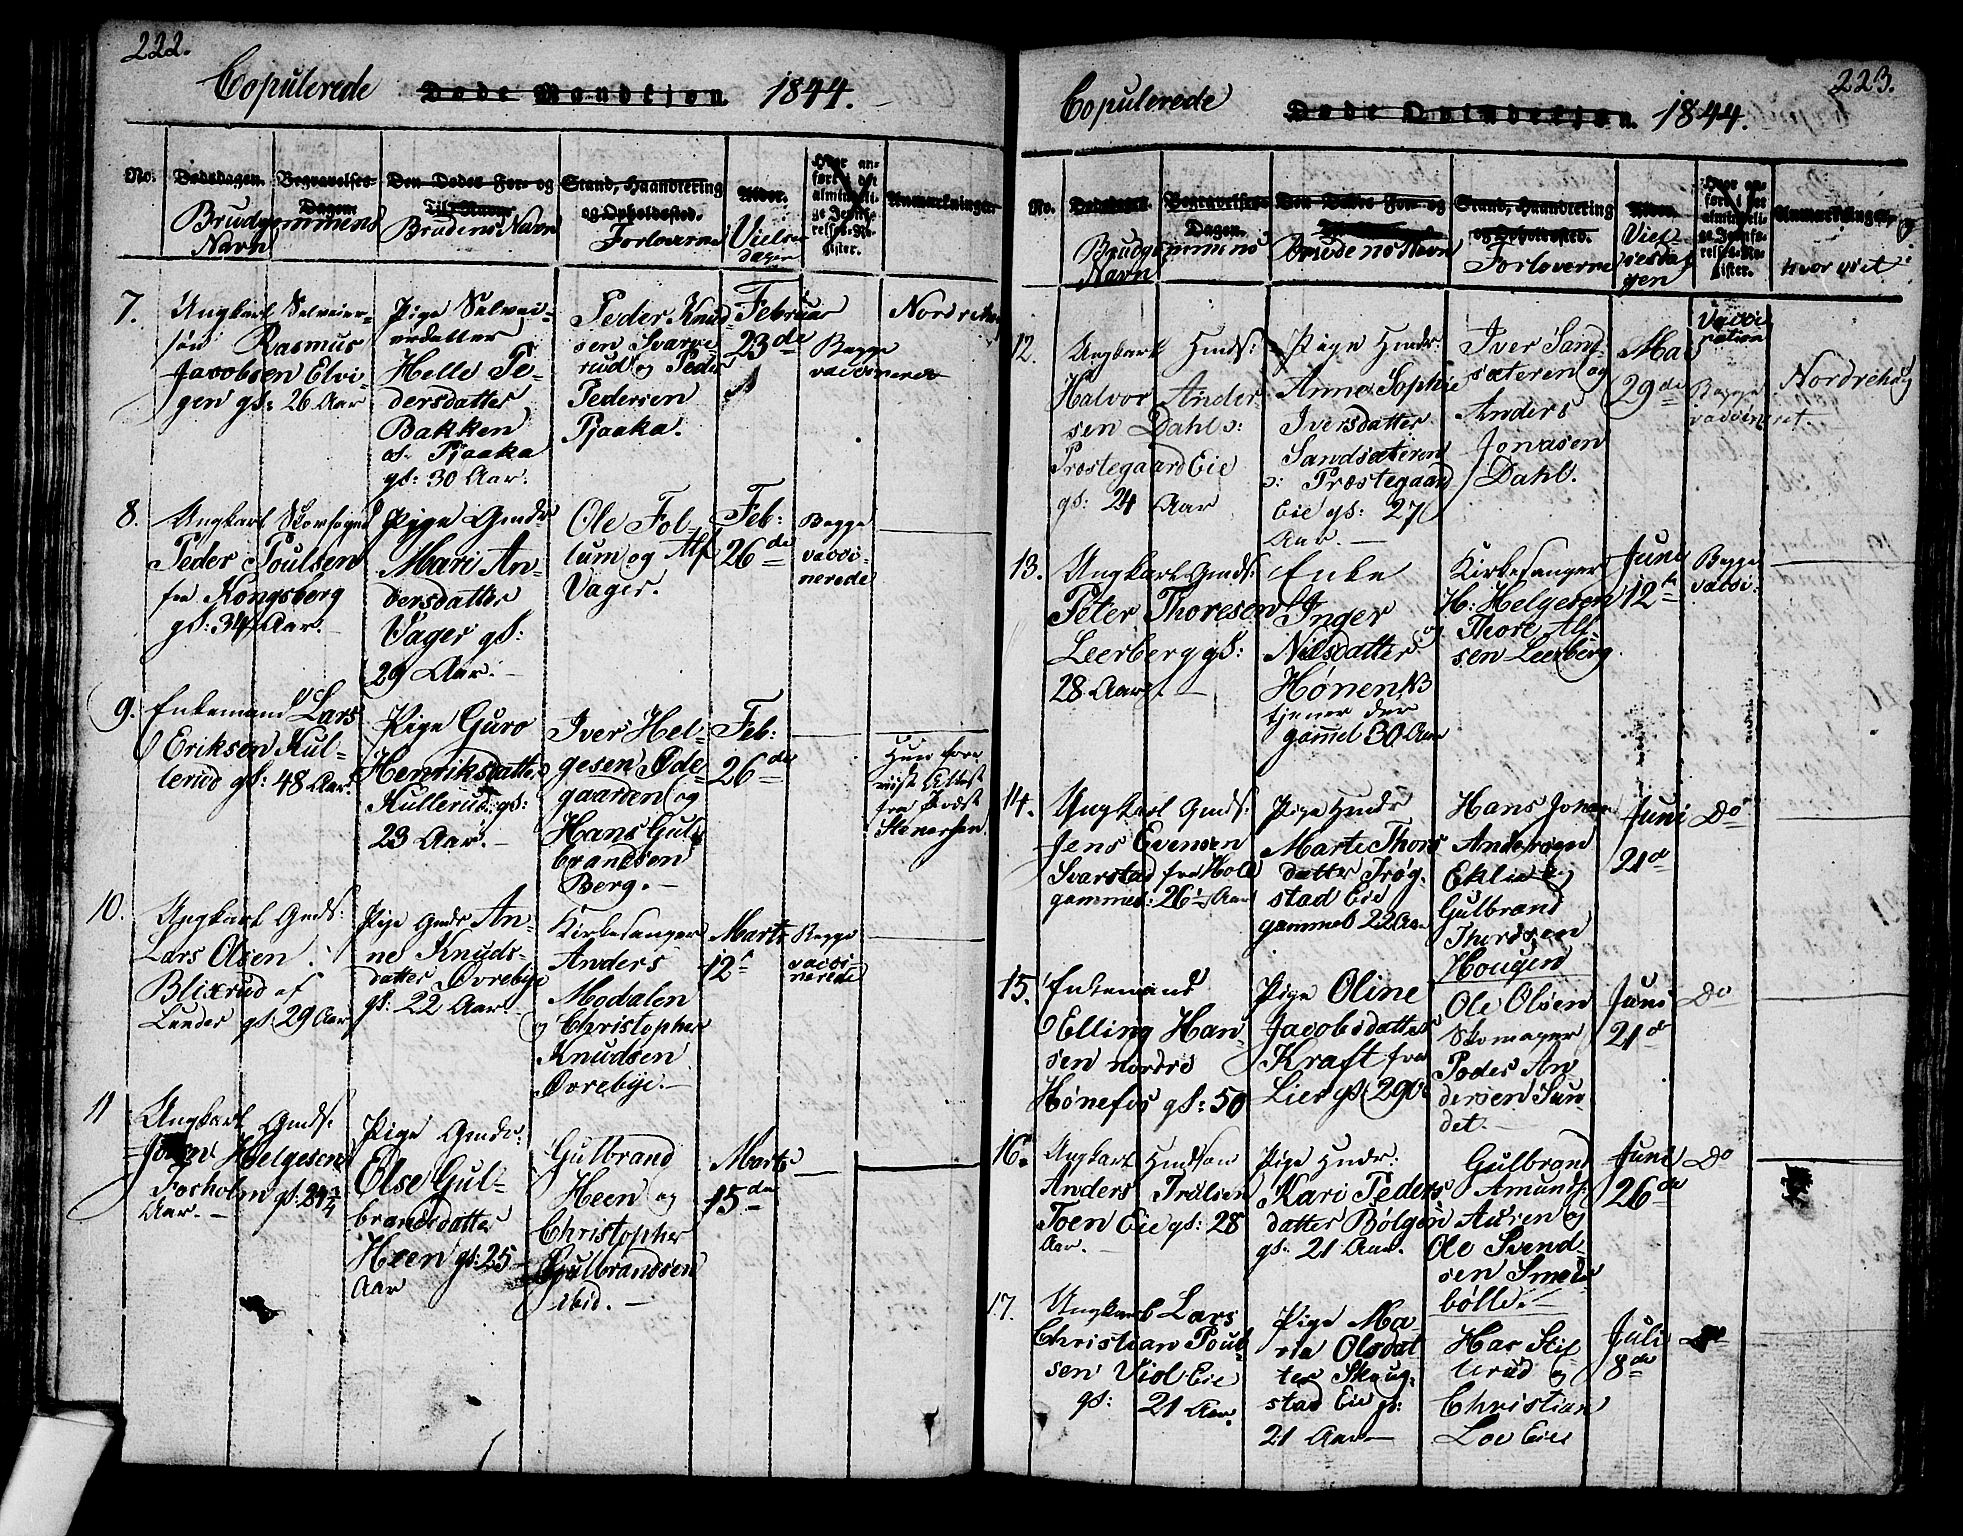 222.
Copulerede Døde Mandkjøn 1844.
No. Dødsdagen. Begravelses-Dagen. Den Dødes For- og Til-Navn Stand, Haandtering og Opholdssted. Alder. Hvor anført i det almindelige Jevnførelses-Register. Anmærkninger
Brudgommens Navn
Brudens Navn
Forloverne
Vielses
dagen
7.
Ungkarl Selveier-
søn Rasmus
Jacobsen Elvi-
gen gl: 26 Aar
Pige Selvei-
erdatter
Helle Pe-
dersdatter
Bakken
Pjaaka
gl: 30 Aar.
Peder Knud-
sen Svarve
rud og Peder
Pedersen
Pjaaka.
Februar
23de
Begge
vaccinerede
Nordrehoug
8.
Ungkarl
Peder Poulsen
fra Kongsberg
gl: 34 Aar.
Pige Gmdr
Mari An-
dersdatter
Vager gl:
29 Aar.
Ole Fol-
lum og Alf
Vager.
Feb:
26de
Begge
vacci-
nerede
9.
Enkemand Lars
Eriksen Kul-
lerud gl: 48 Aar.
Pige Guro
Henriksdatter
Kullerud gl:
23 Aar.
Iver Hel-
gesen Øde-
gaarden og
Hans Gul-
brandsen
Berg.
Feb:
26de
Hun fore
viste Attest
fra Præst
Stenersen.
10.
Ungkarl Gmds:
Lars Olsen
Blixrud af
Lunder gl: 29 Aar
Pige Gmdr An-
ne Knuds-
datter Ovrebye
gl: 22 Aar.
Kirkesanger
Anders
Modalen
og Christopher
Knudsen
Ovrebye.
Marts
12te
Begge
vacci-
nerede
11
Ungkarl Gmds:
Johan Helgesen
Fosholm gl: 24 1/4
Aar.
Pige Gmdr:
Else Gul-
brandsdatter
Heen gl: 25
Aar
Gulbrand
Heen og
Christopher
Gulbrandsen
ibid.
Marts
15de
223.
Copulerede Døde Qvindekjøn. 1844.
No. Dødsdagen. Begravelses-Dagen. Den Dødes For- og Til-Navn Stand, Haandtering og Opholdssted. Alder. Hvor anført i det almindelige Jevnførelses-Register. Anmærkninger
Brudgommens Navn
Brudens Navn
Forloverne
Viel-
sesda
gen
Vacci
nation
hvor viet
12.
Ungkarl Hmds:
Halvor Ander-
sen Dahl
Præstegaard Eie
gl: 24 Aar
Pige Hmdr:
Anne Sophie
Iversdatter
Sandsæteren
Præstegaard
Eie gl: 27
Aar.
Iver Sand-
sæteren og
Anders
Jonasen
Dahl.
Mai
29de
Begge
vaccineret.
Nordrehoug
13.
Ungkarl Gmds:
Peter Thoresen
Leerberg gl:
28 Aar.
Enke
Inger
Nilsdatter
Hønen
tjener der
gammel 30 Aar
Kirkesanger
H: Helgesen
og Thore Al-
sen Leerberg.
Juni
12te
Begge
vacci:
14.
Ungkarl Gmds:
Jens Evensen
Svarstad fra Hole
gammel: 26 1/2 Aar
Pige Hmdr
Marte Thors
datter Trøg-
stad Eie
gammel 22 Aar
Hans Johan
Andersen
Eklie og
Gulbrand
Thordsen
Hougen
Juni
21de
Do
15.
Enkemand
Elling Han-
sen nordre
Hønefos gl: 50
Pige Oline
Jacobsdatter
Kraft fra
Lier gl: 29
Ole Olsen
Skomager
Peder An
dersen Sun-
det.
Juni
21de
Do
16.
Ungkarl Hmdsøn
Anders Trulsen
Toen Eie gl: 28
Aar.
Pige Hmdr:
Kari Peders
datter Bølgen
gl: 21 Aar.
Gulbrand
Amund:
Asken og
Ole Svend-
sen Smeds
bølle.
Juni
26de
Do
17.
Ungkarl Lars
Christian Poul-
sen Viol Eie
gl: 21 Aar.
Pige Ma-
ria Olsdat
ter Skoug-
stad Eie gl:
21 Aar
Christian
Loe Eie
Juli
8de